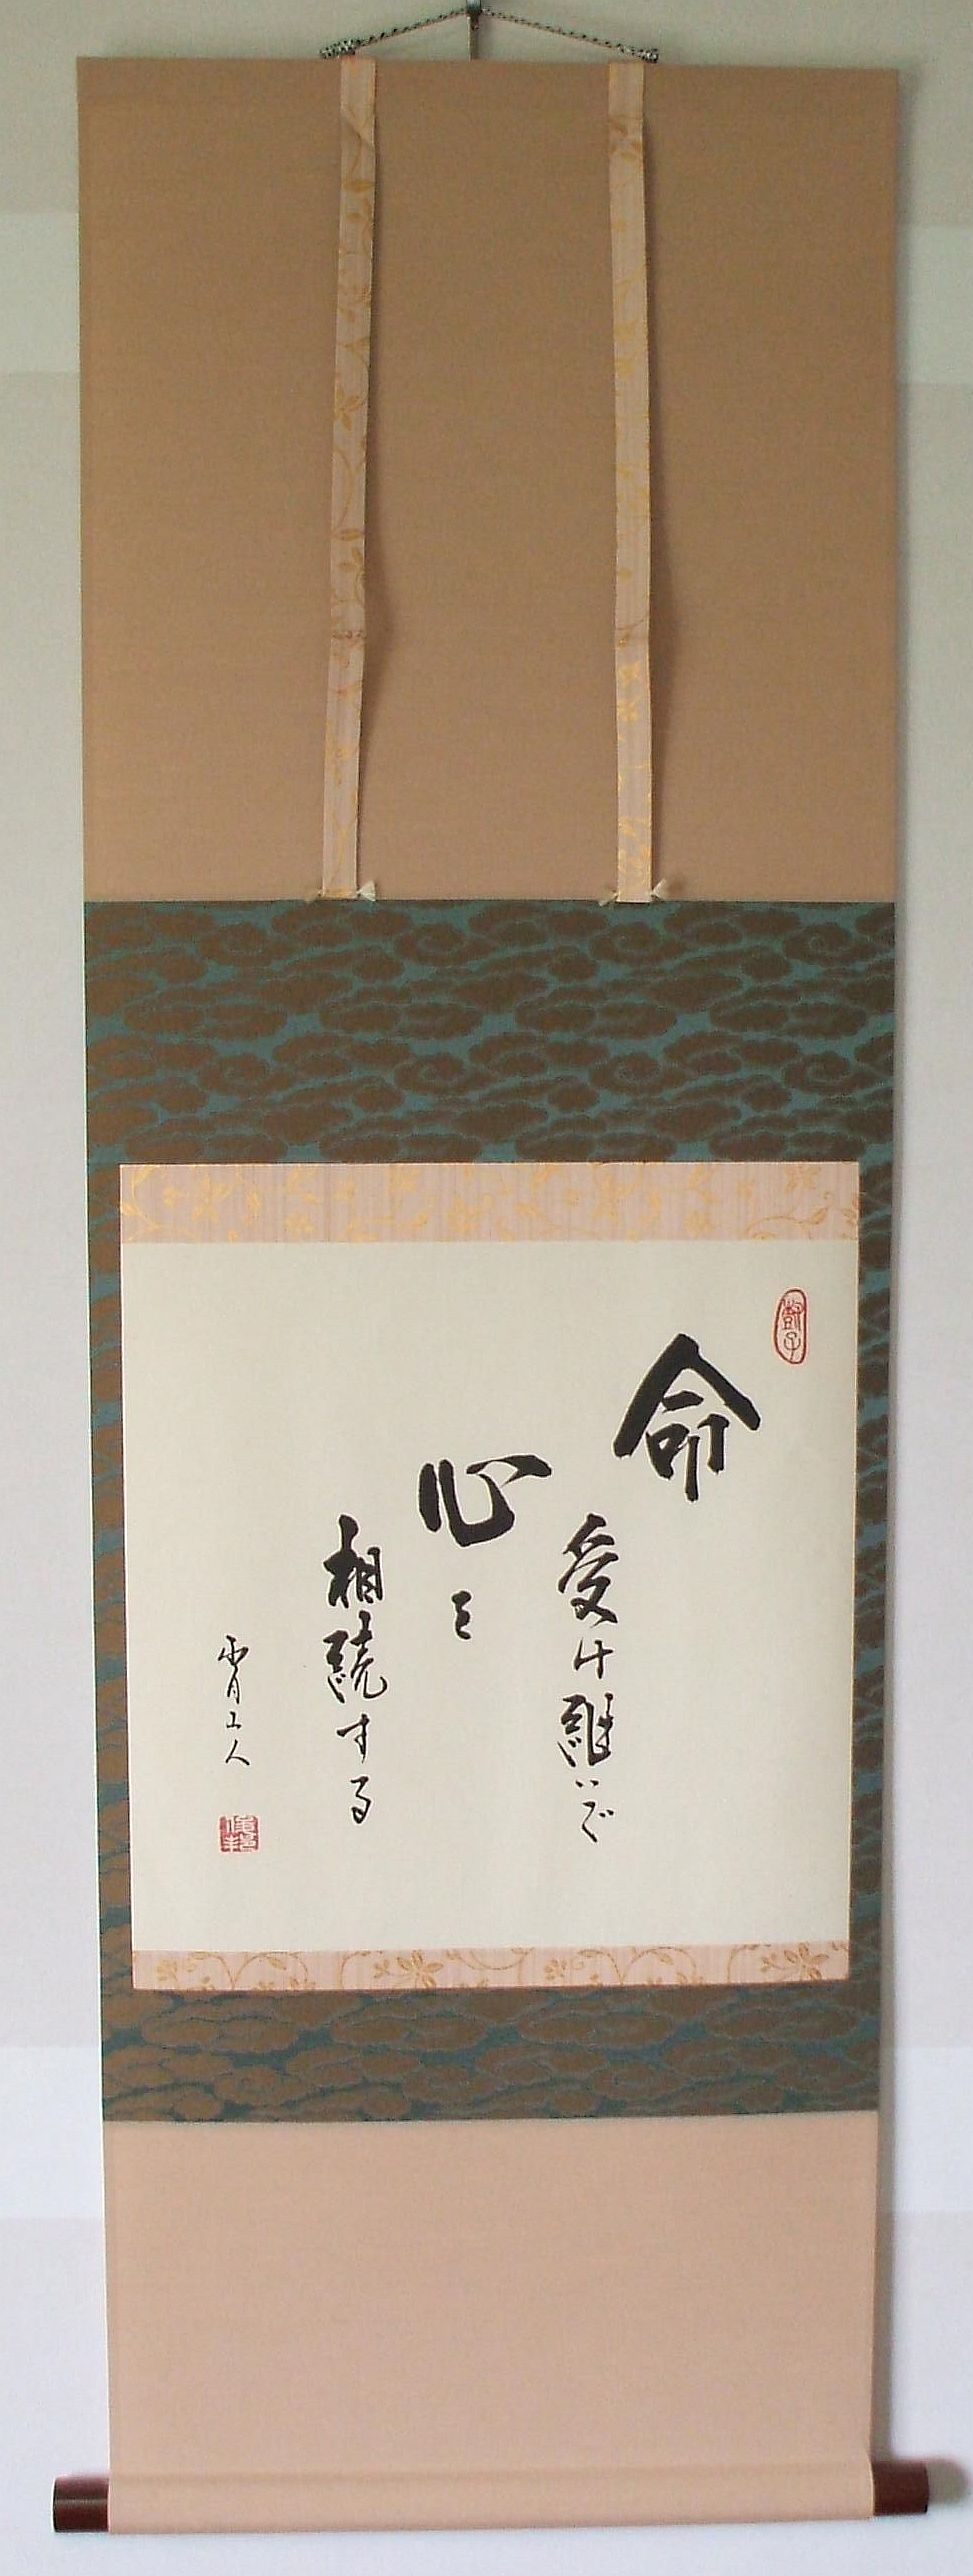 命
受け継いで
心を
相続する